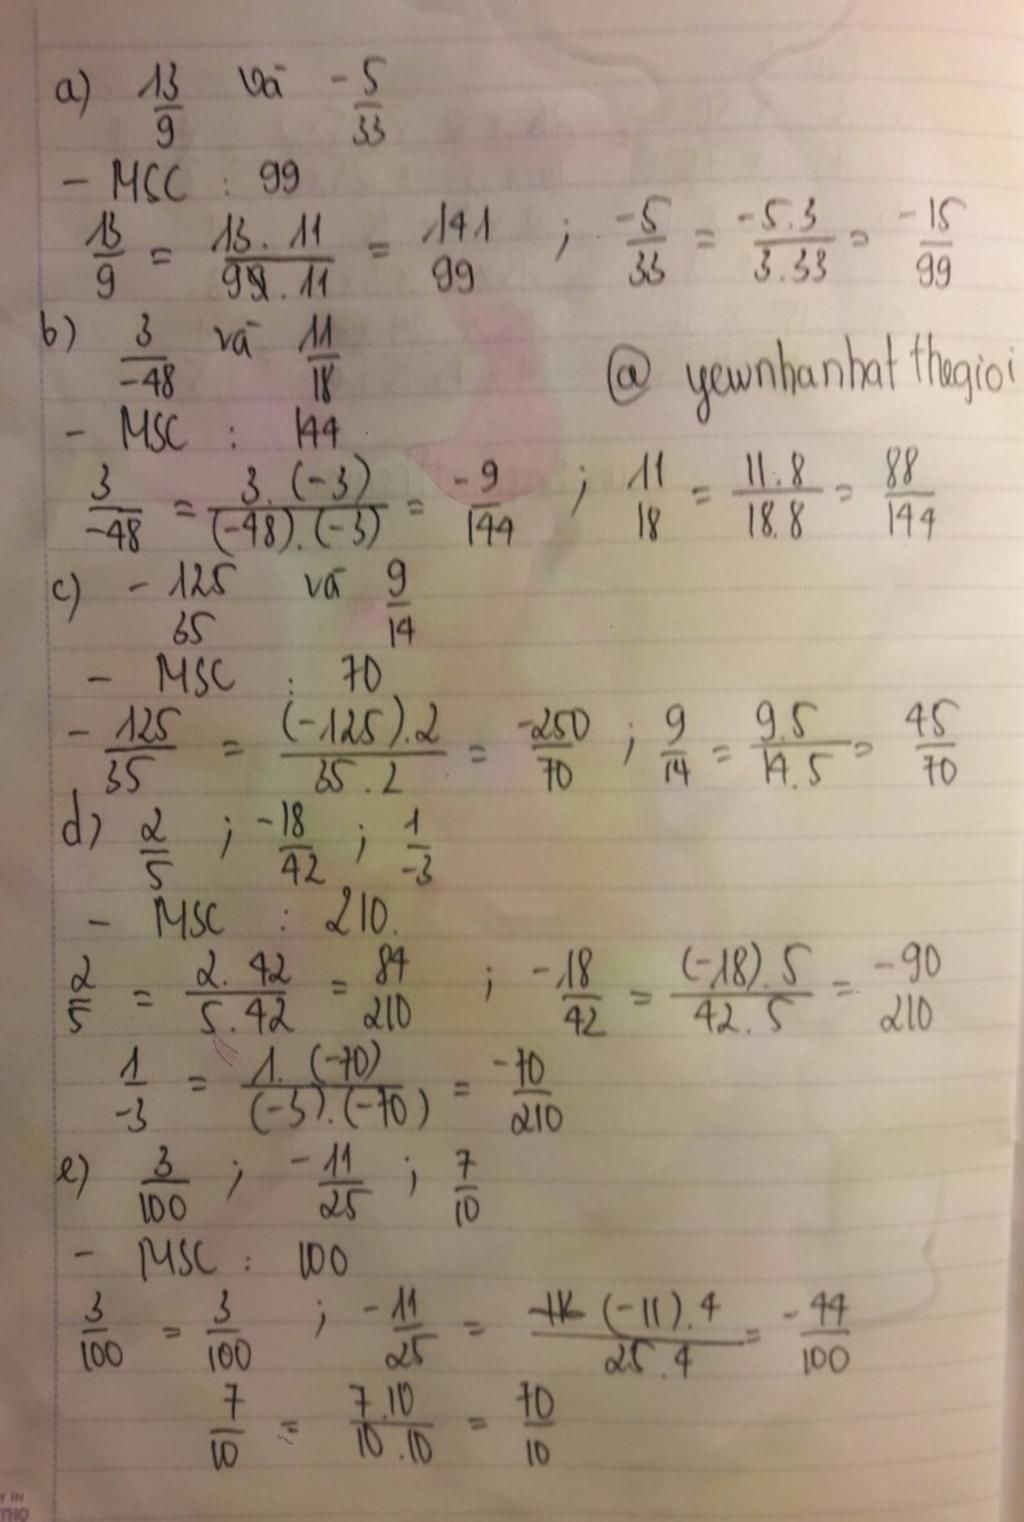 a) 13/9 và -5/33
- MSC : 99
13/9 = 13.11/9.11 = 141/99 ; -5/33 = -5.3/3.33 = -15/99
b) 3/-48 và 11/18
@ yewnhanhat thegioi
- MSC : 144
3/-48 = 3.(-3)/(-48).(-3) = -9/144 ; 11/18 = 11.8/18.8 = 88/144
c) -125/35 và 9/14
- MSC : 70
-125/35 = (-125).2/35.2 = -250/70 ; 9/14 = 9.5/14.5 = 45/70
d) 2/5 ; -18/42 ; 1/-3
- MSC : 210.
2/5 = 2.42/5.42 = 84/210 ; -18/42 = (-18).5/42.5 = -90/210
1/-3 = 1.(-70)/(-3).(-70) = -70/210
e) 3/100 ; -11/25 ; 7/10
- MSC : 100
3/100 = 3/100 ; -11/25 = (-11).4/25.4 = -44/100
7/10 = 7.10/10.10 = 70/10
Y IN
THO